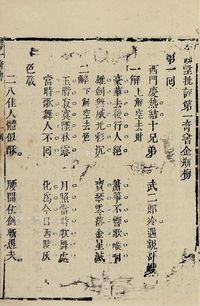 堂批評第一奇書金瓶梅
第一回
西門慶熱結十兄弟　武二郎冷遇親哥嫂
一解上解空去財
豪華去後行人絕　簫箏不響歌喉咽
雄劍無威光彩沉　寶琴零落金星滅
二解下解空去色
玉階寂寞墜秋露　月照當時歌舞處
當時歌舞人不同　化為今日西陵灰
色箴
二八佳人體似酥　腰間仗劍斬愚夫